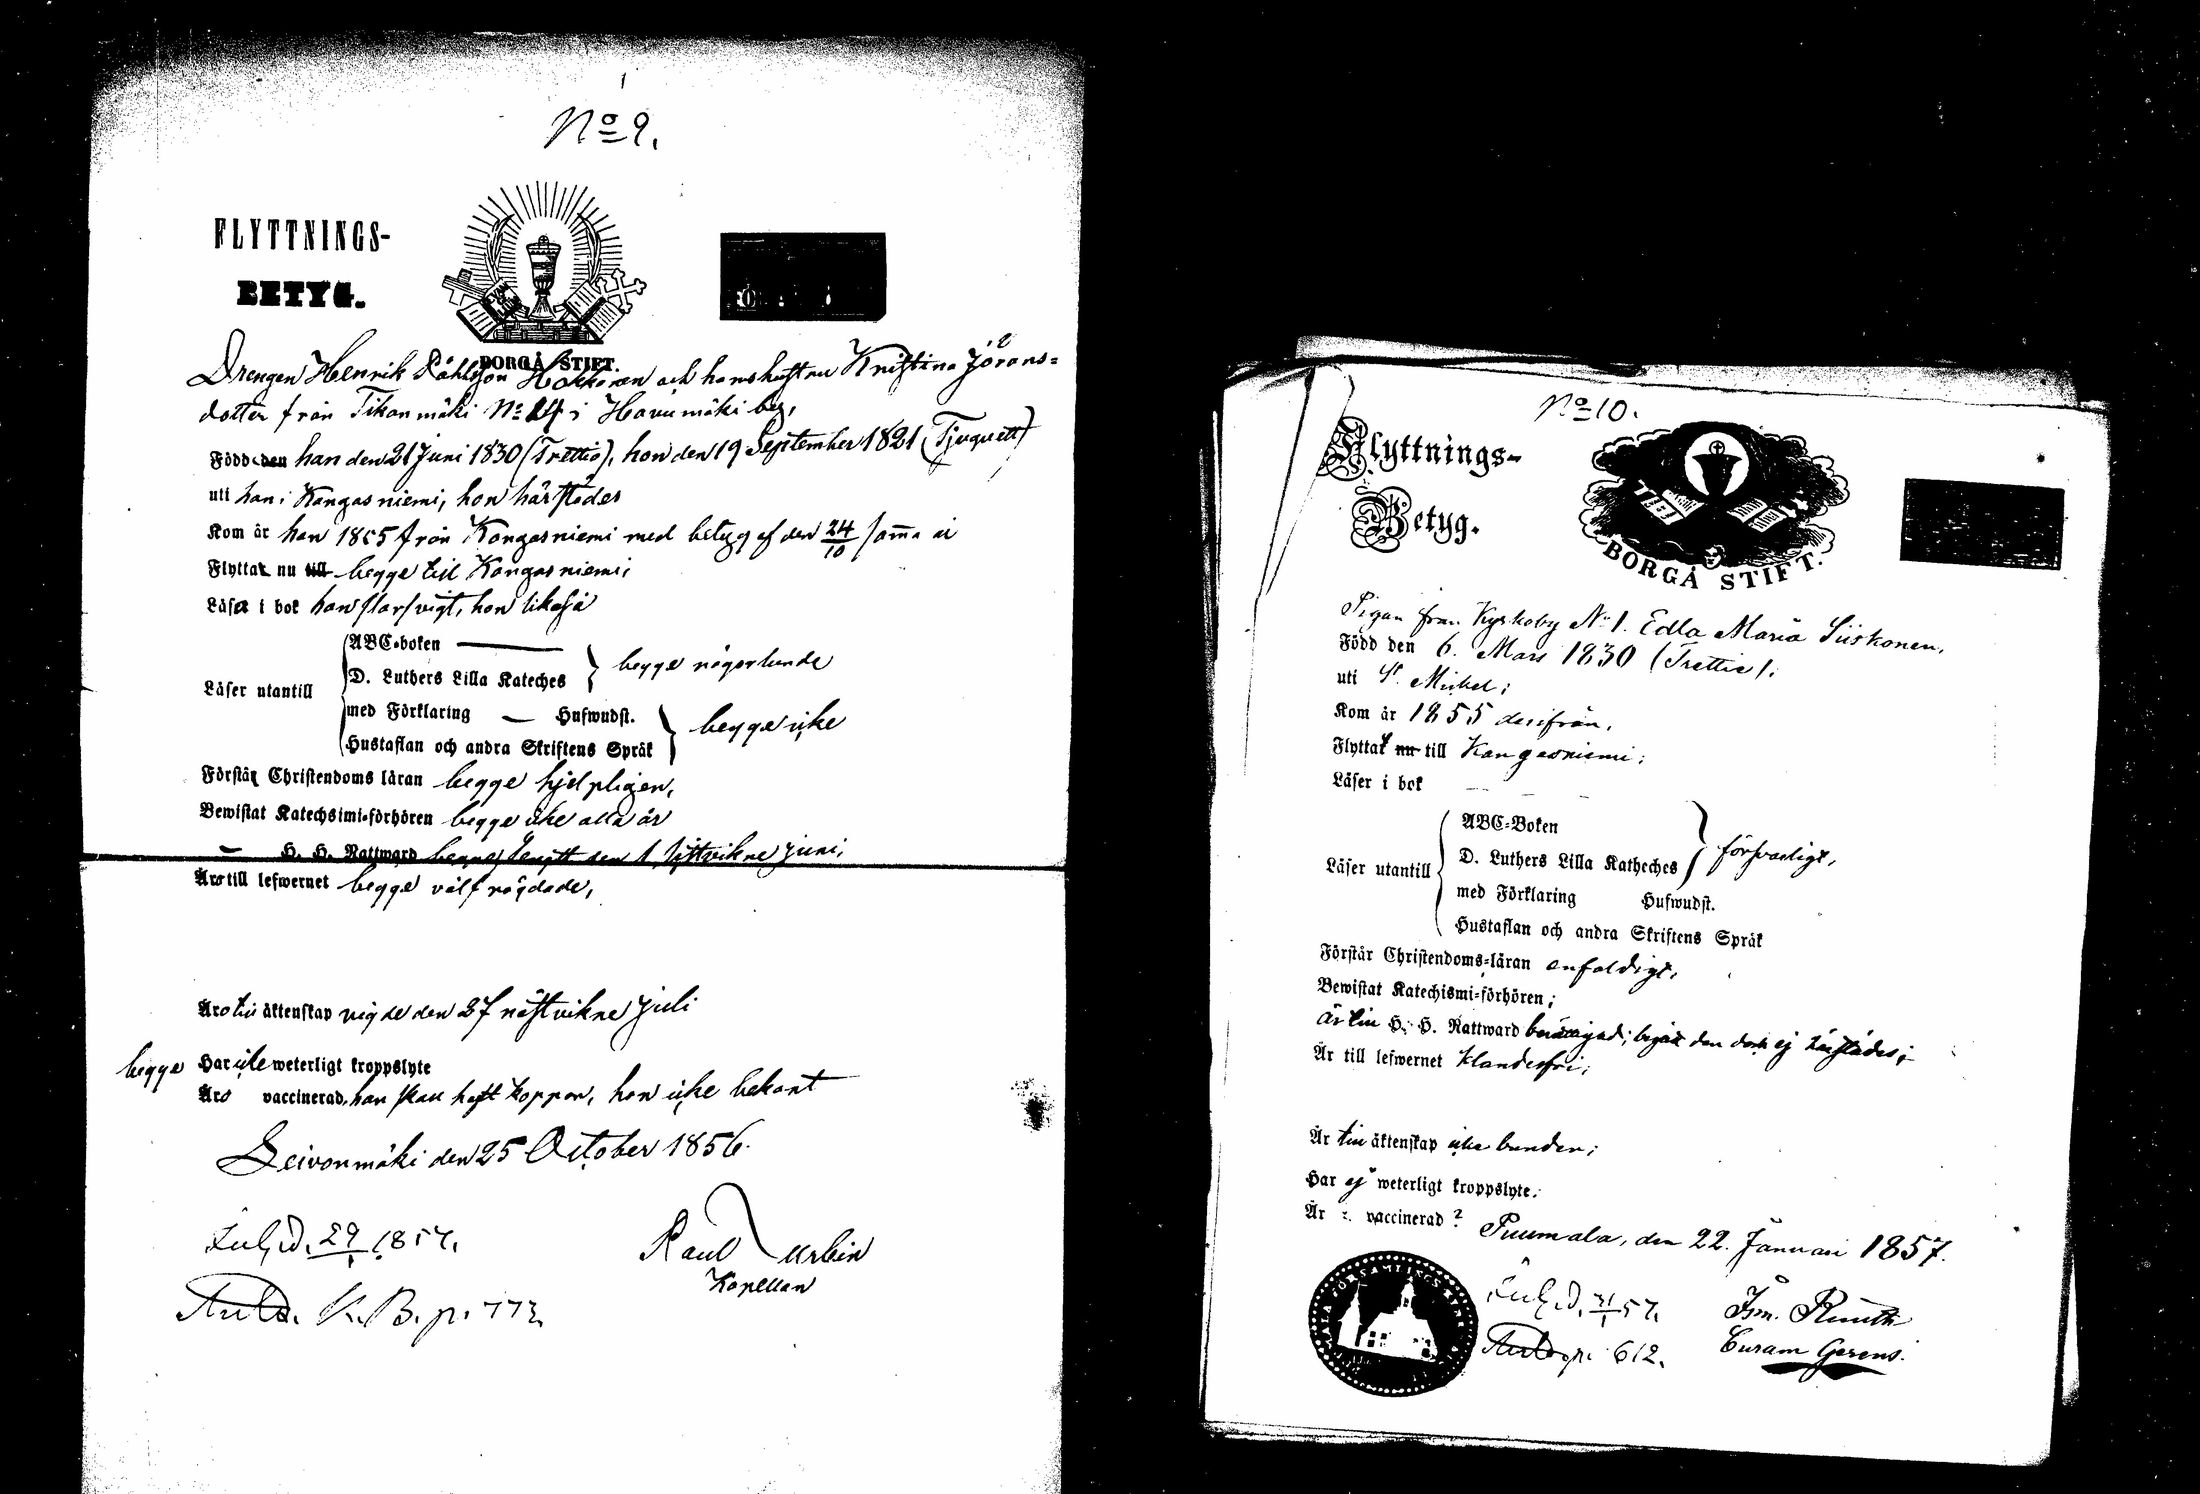 No 9.
FLYTTNINGS-
BETYG.
BORGÅ STIFT.
Drengen Henrik Påhlsson Hokkanen och hans hustru Kristina Jörans=
dotter från Tikanmäki No 24 i Havumäki by,
Född den han den 21 Juni 1830 (Trettio), hon den 19 September 1821 (Tjuguett)
uti han i Kangasniemi, hon härstädes
Kom år han 1855 från Kangasniemi med betyg af den 24/10 samma år
Flyttat nu till begge till Kangasniemi,
Läsa i bok han försvagt, hon likaså
ABC-boken
D. Luthers Lilla Kateches
begge någorlunda
Läser utantill
med Förklaring — Hufwudst.
Hustaflan och andra Skriftens Språk
begge icke
Förstå Christendoms läran begge hjelpligen,
Bewistat Katechsimi-förhören begge icke alla år
— H. H. Nattward begge begått den 1 sistvikne Juni,
Äro till lefwernet begge välfrägdade,
Äro till äktenskap vigde den 27 nästvikne Juli
begge Har icke weterligt kroppslyte
Äro vaccinerad, han skall haft koppor, hon icke bekant
Leivonmäki den 25 October 1856.
29/1 1857.
Paul Durbin
Kapellan
K.B. p. 773.
No 10.
Flyttnings-
Betyg.
BORGÅ STIFT.
Pigan från Kyrkoby No 1. Edla Maria Siiskonen,
Född den 6. Mars 1830 (Trettio);
uti St. Michel;
Kom år 1855 derifrån,
Flyttat nu till Kangasniemi;
Läser i bok
ABC-Boken
D. Luthers Lilla Katheches
försvarligt,
Läser utantill
med Förklaring Hufwudst.
Hustaflan och andra Skriftens Språk
Förstår Christendoms-läran enfaldigt,
Bewistat Katechismi-förhören;
är till H. H. Nattward berättigad; begått den dock ej härstädes;
Är till lefwernet klanderfri;
Är till äktenskap icke bunden;
Har ej weterligt kroppslyte.
Är : vaccinerad ?
Puumala, den 22. Januari 1857.
31/1 57.
Ism. Ruuth
p. 612.
Curam Gerens.